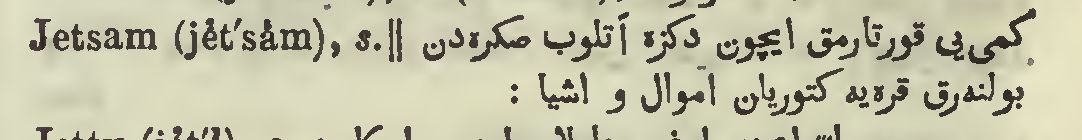 Jetsam (jĕt′săm), s.‖ كمی‌یی قورتارمق ایچون دكزه آتلوب صكره‌دن
بولنه‌رق قره‌یه كتوریلن اموال و اشیا :